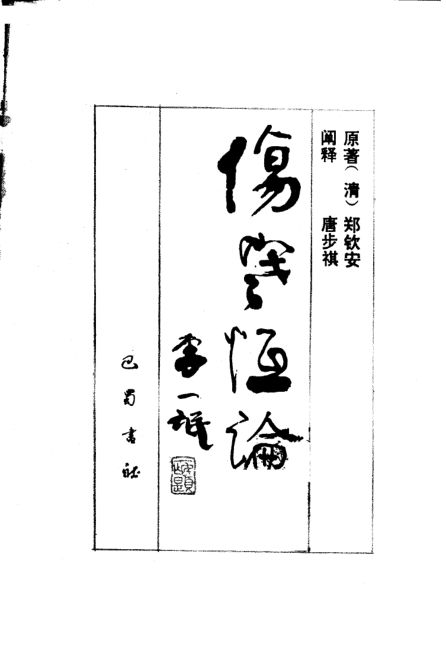 原著(清)郑钦安
阐释 唐步祺
傷寒恒論
李一氓
巴蜀书社